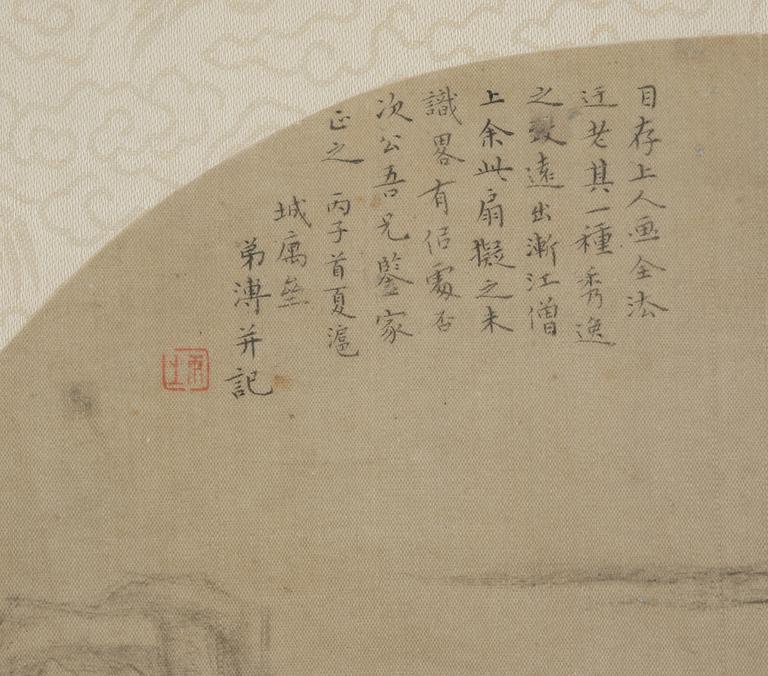 目存上人画全法
迂老其一種秀逸
之遠出漸江僧
上余此扇擬之未
識畧有佀處否
次公吾兄鑒家
正之 丙子首夏滬
城寓壘
弟溥并記